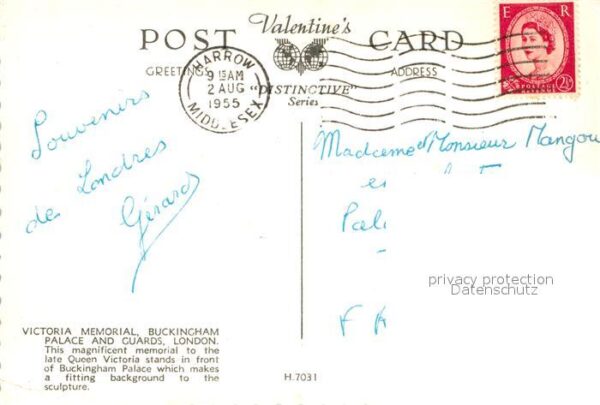 Valentine's
POST CARD
GREETINGS
ADDRESS
"DISTINCTIVE"
Series
HARROW
9 15 AM
2 AUG
1955
MIDDLESEX
E R
POSTAGE
2½
Souvenirs
de Londres
Gérard
Madame et Monsieur Mangou
privacy protection
Datenschutz
VICTORIA MEMORIAL, BUCKINGHAM
PALACE AND GUARDS, LONDON.
This magnificent memorial to the
late Queen Victoria stands in front
of Buckingham Palace which makes
a fitting background to the
sculpture.
H.7031